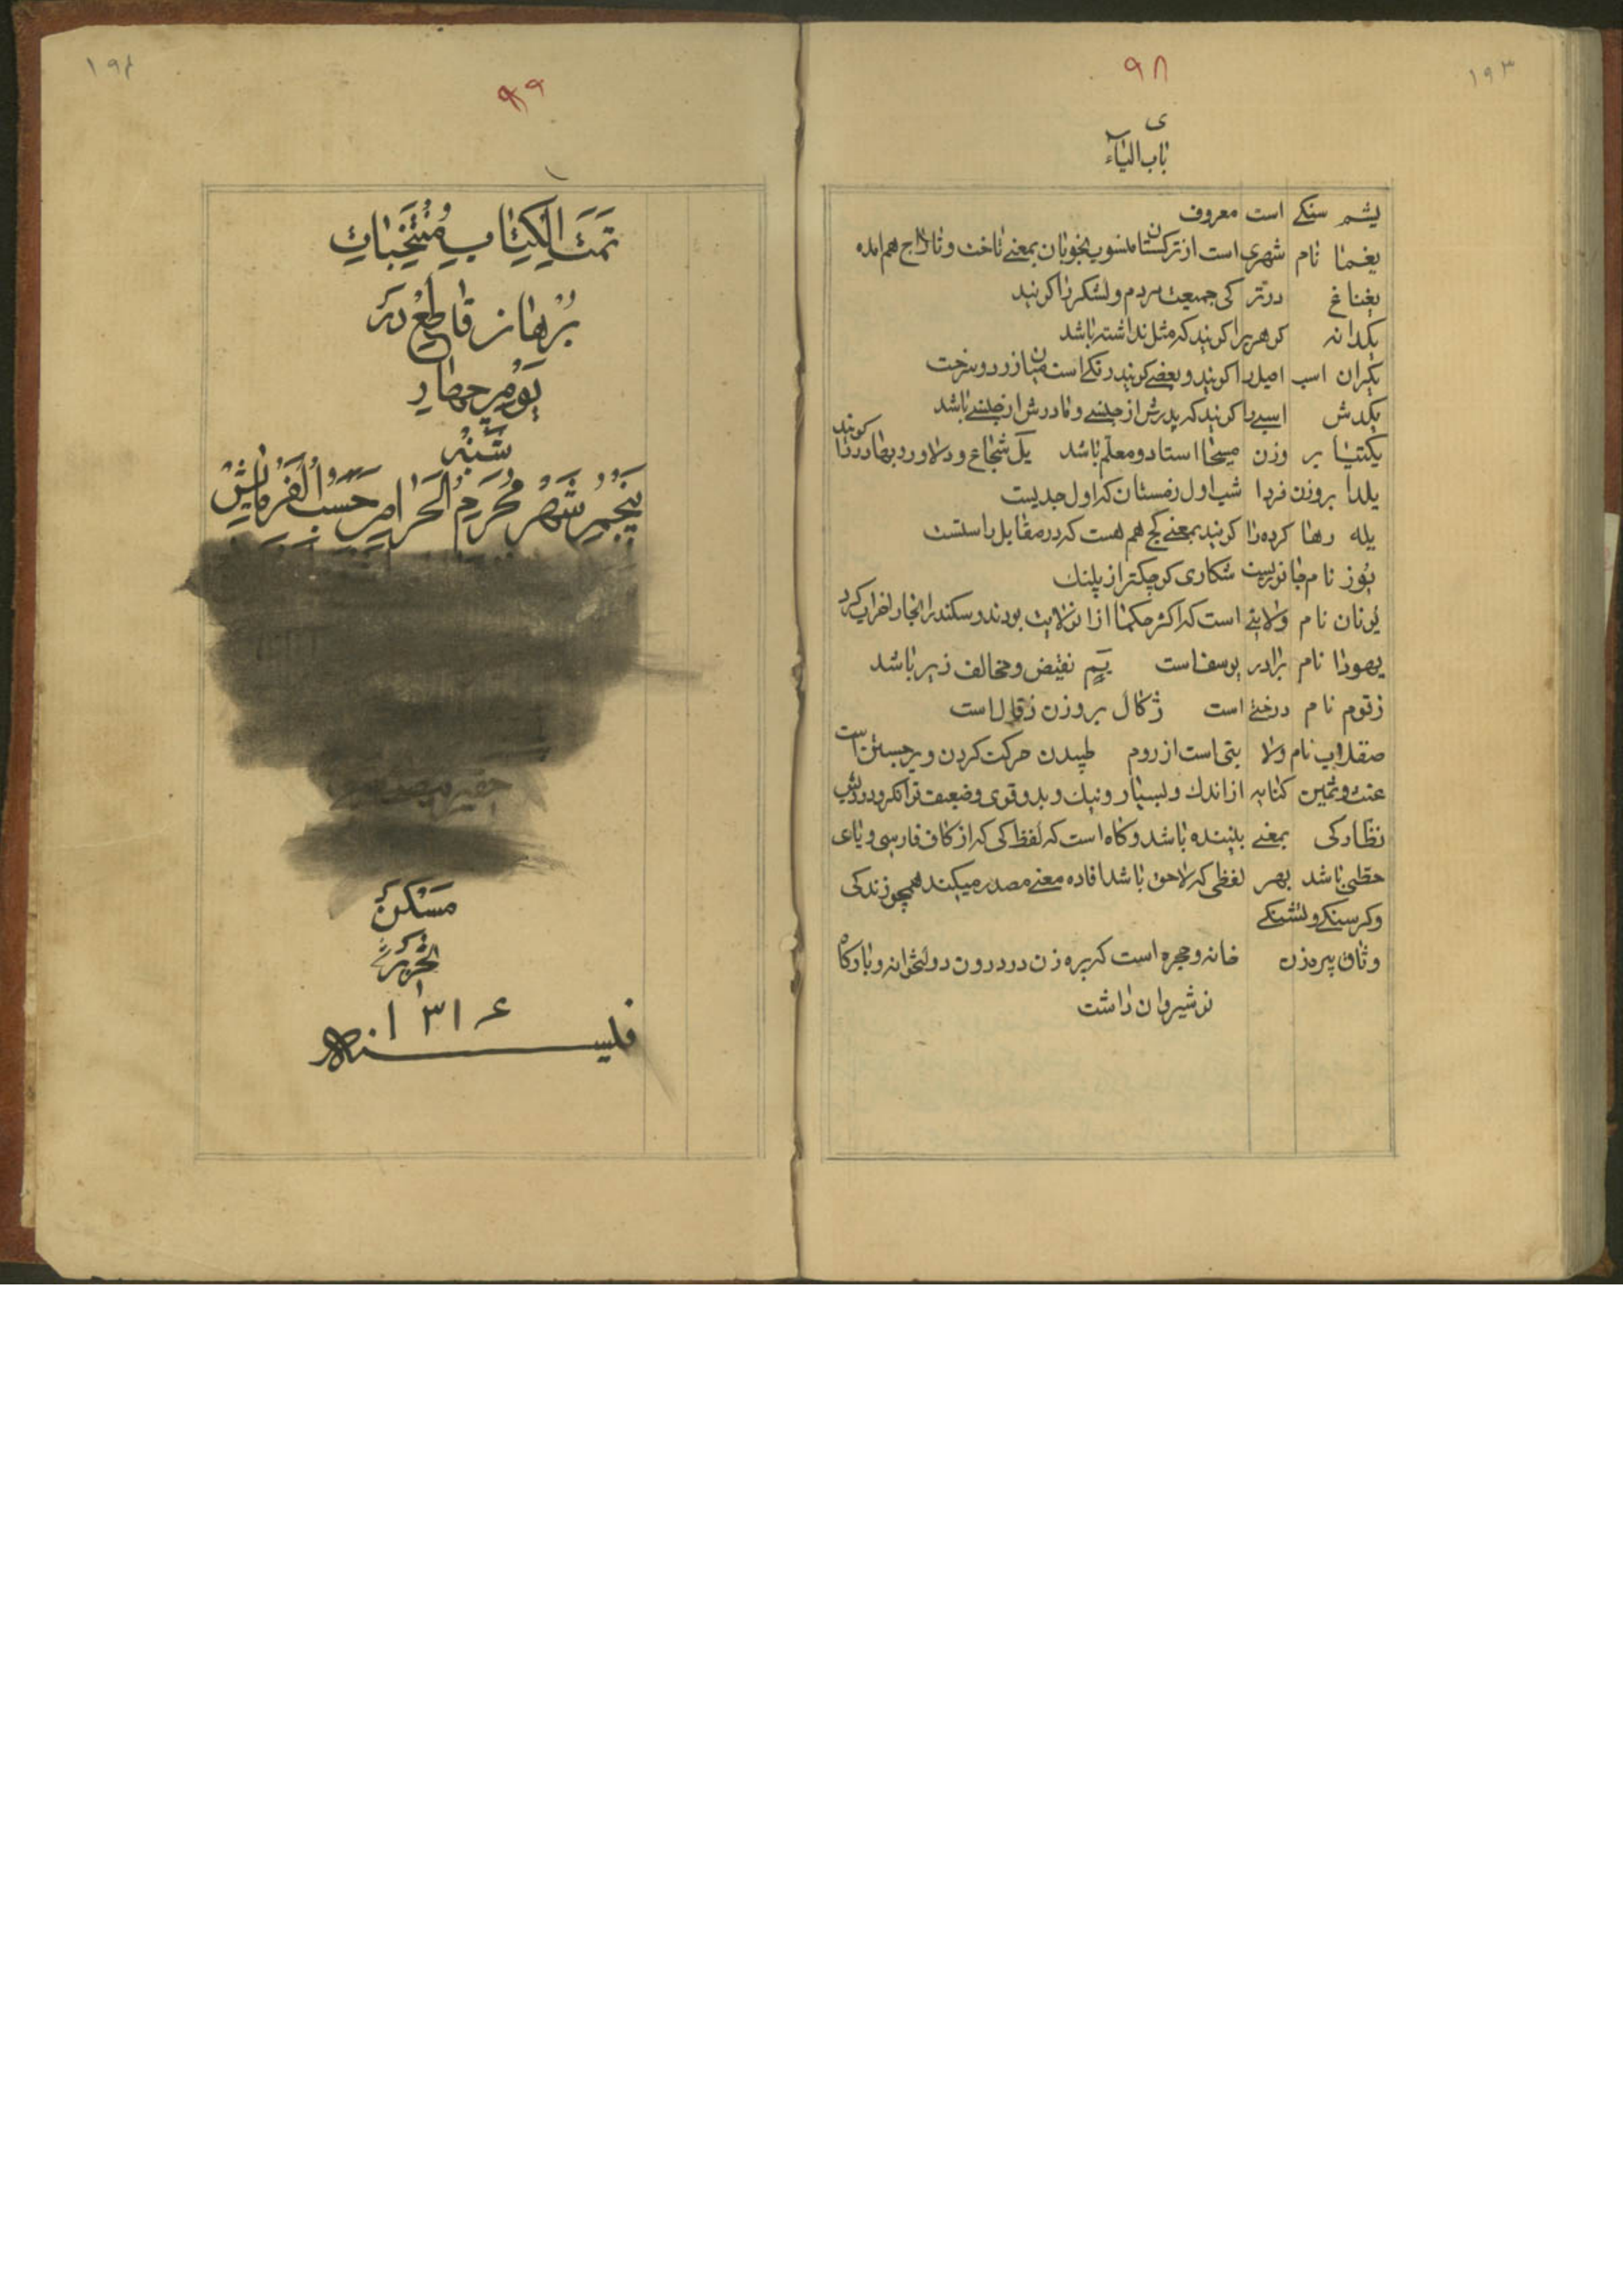 ۱۹۳
۹۸
ی
باب الیاء
یشم سنکے است معروف
یغما نام شهری است از ترکستان منسوب بخوبان بمعنے تاخت و تاراج هم امده
یغناغ در ترکی جمیعت مردم و لشکر را کویند
یکدانه کوهریرا کویند که مثل نداشته باشد
یکران اسب اصیل را کویند و بعضے کویند رنکے است میان زرد و سرخت
یکدش اسبے را کویند که پدرش از جنسے و مادرش از جنسے باشد
یکتیا بر وزن میحا استاد و معلم باشد یل شجاع و دلاور و بهادر را کویند
یلدا بروزن فردا شب اول زمستان که اول جدیست
یله رها کرده را کویند بمعنے کج هم هست که در مقابل راستست
یوز نام جانوریست شکاری کوچکتر از پلنک
یونان نام ولایتے است که اکثر حکما از ان ولایت بودند و سکندر انجا را خراب کرد
یهودا نام برادر یوسف است نقیض و مخالف زیر باشد
زقوم نام درختے است ژکال بروزن زقال است
صقلاب نام ولایتی است از روم طپیدن حرکت کردن و برجستن است
غث و ثمین کنایه از اندك و بسیار و نیك و بد و قوی و ضعیف توانکر و درویش
نظارکی بمعنے بیننده باشد و کاه است که لفظ کی که از کاف فارسی و یای
حطی باشد بهر لفظی که لاحق باشد افاده معنے مصدر میکند همچو زندکی
و کرسنکے و تشنکے
وثاق پیره زن خانه و حجره است که پیره زن در درون دولتخوانه و بارکاه
نوشیروان داشت
۱۹۴
۹۹
تمت الکتاب منتخبات
برهان قاطع در
یوم چهار
شنبه
پنجم شهر محرم الحرام حسب الفرمایش
مسکن
۱۳۱۶
فلیسنه